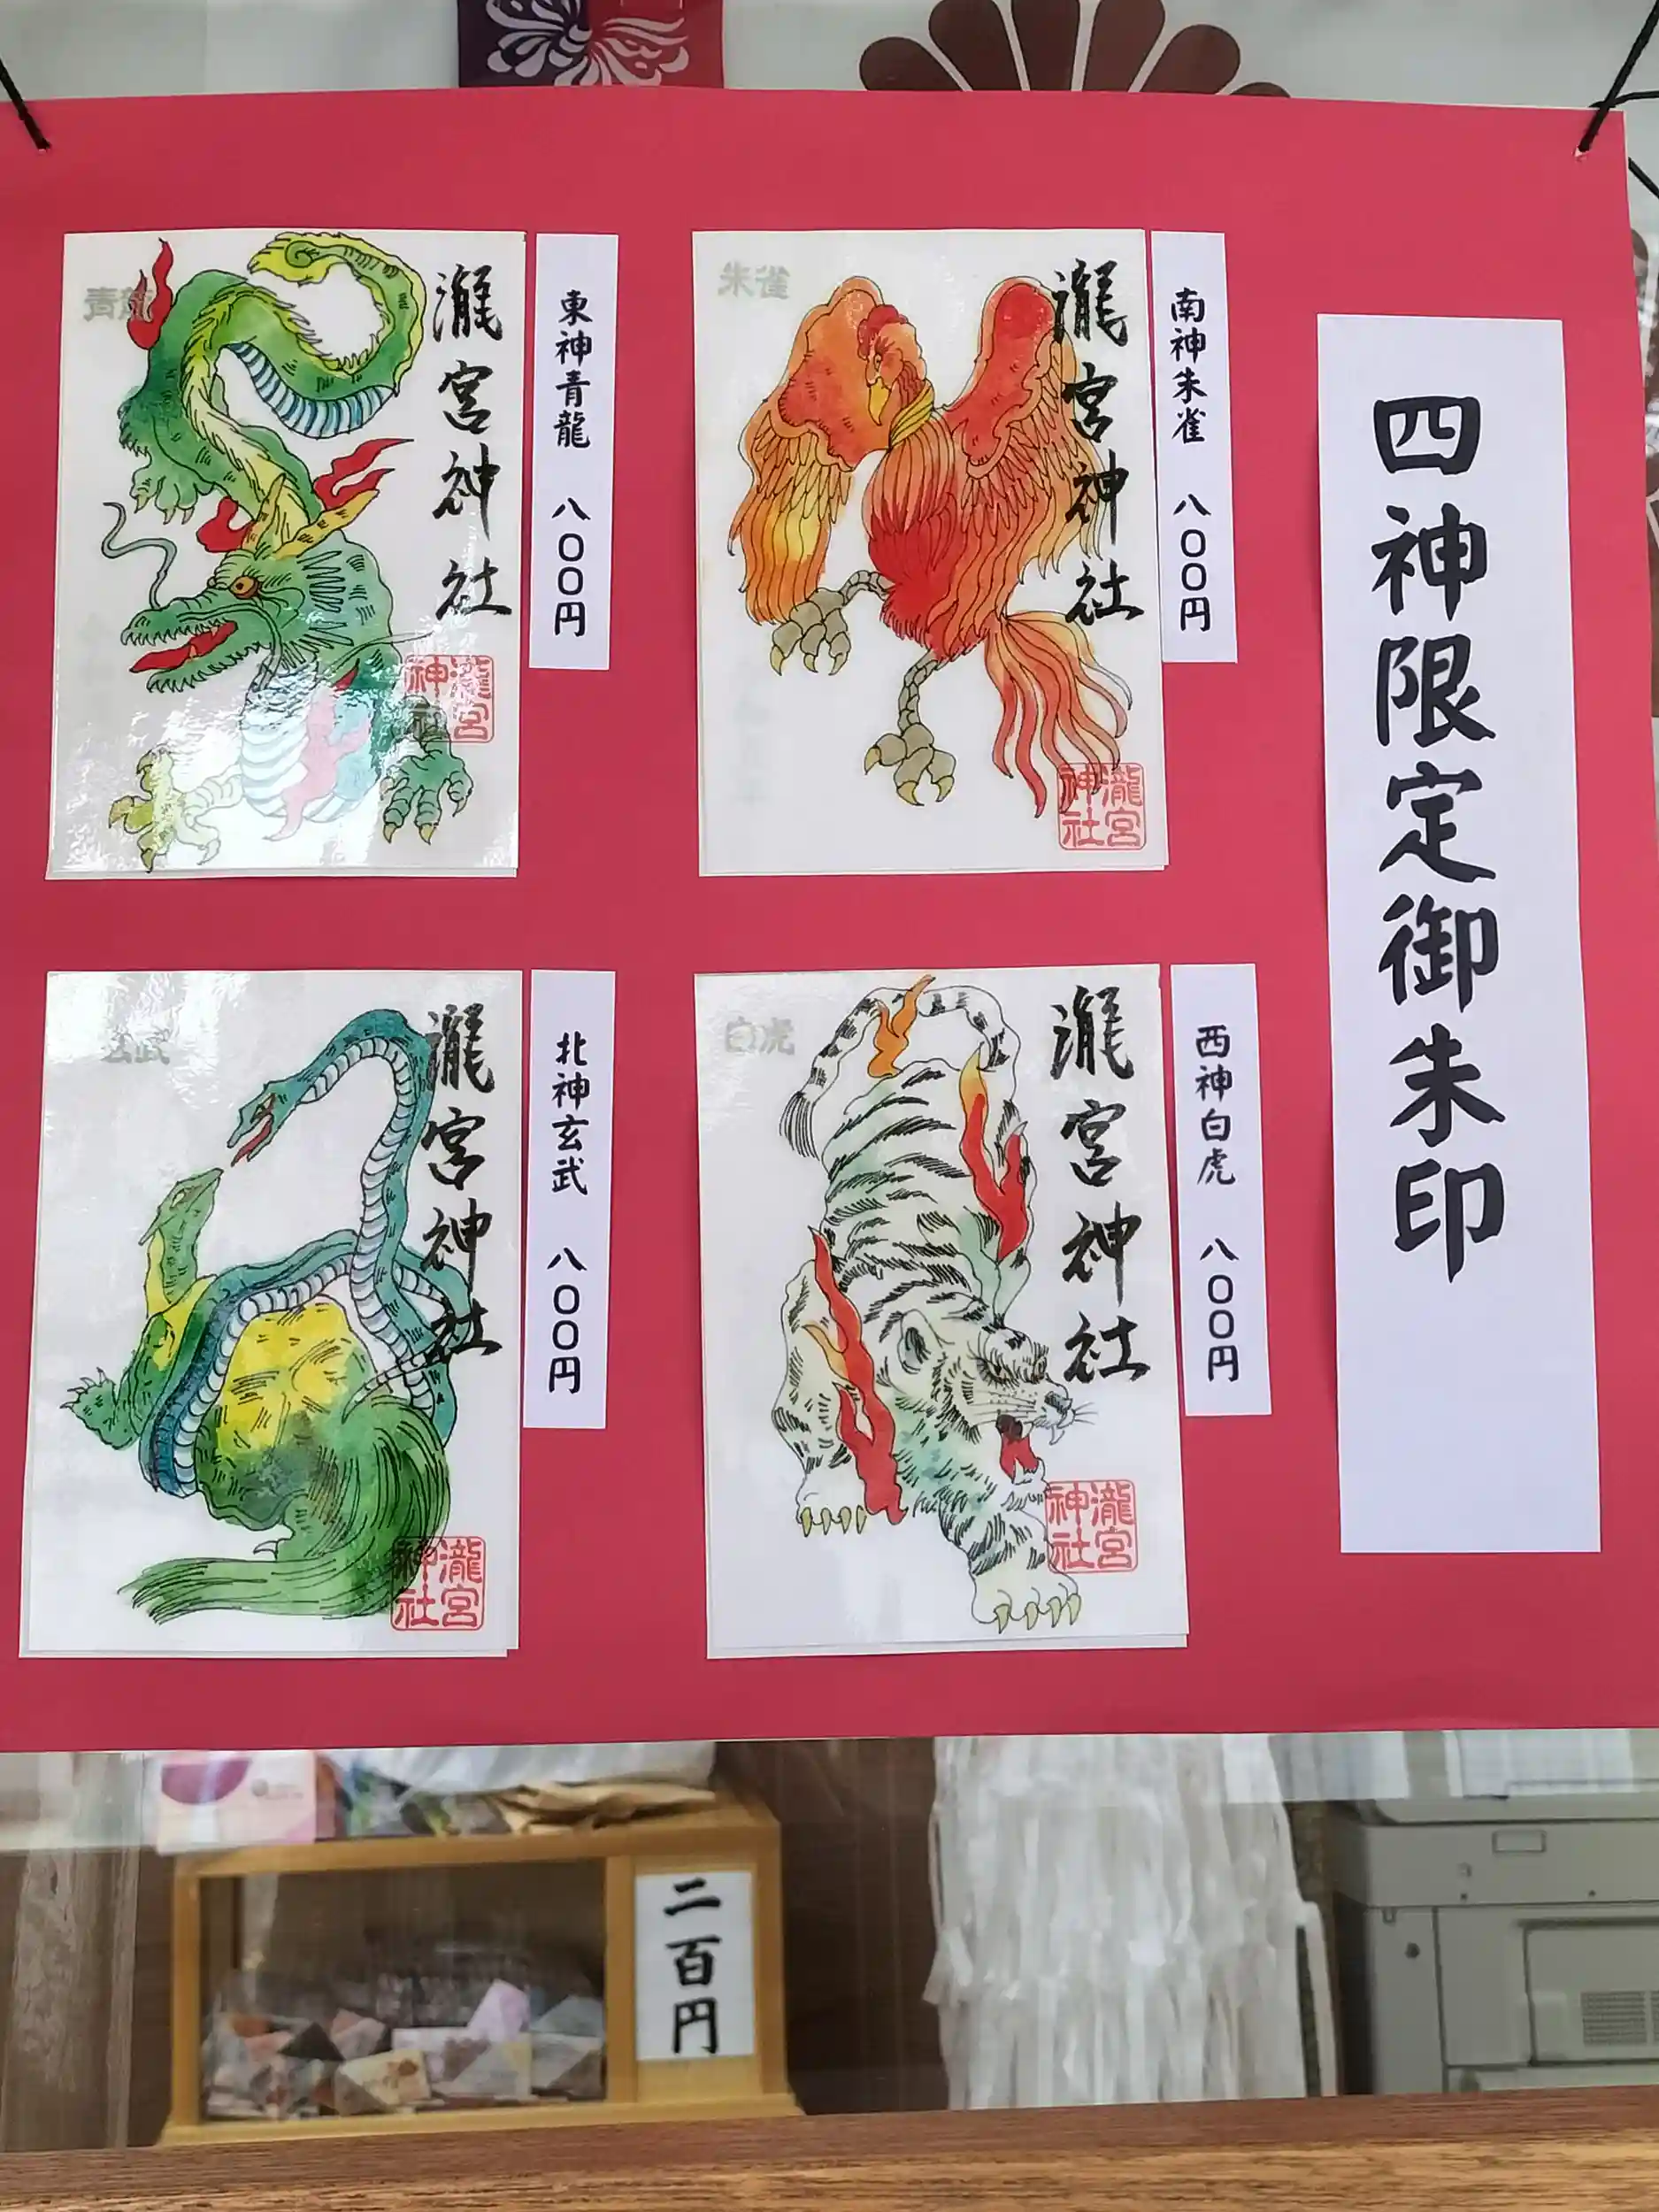 四神限定御朱印
南神朱雀 八〇〇円
朱雀
瀧宮神社
瀧宮神社
東神青龍 八〇〇円
青龍
瀧宮神社
瀧宮神社
西神白虎 八〇〇円
白虎
瀧宮神社
瀧宮神社
北神玄武 八〇〇円
玄武
瀧宮神社
瀧宮神社
二百円